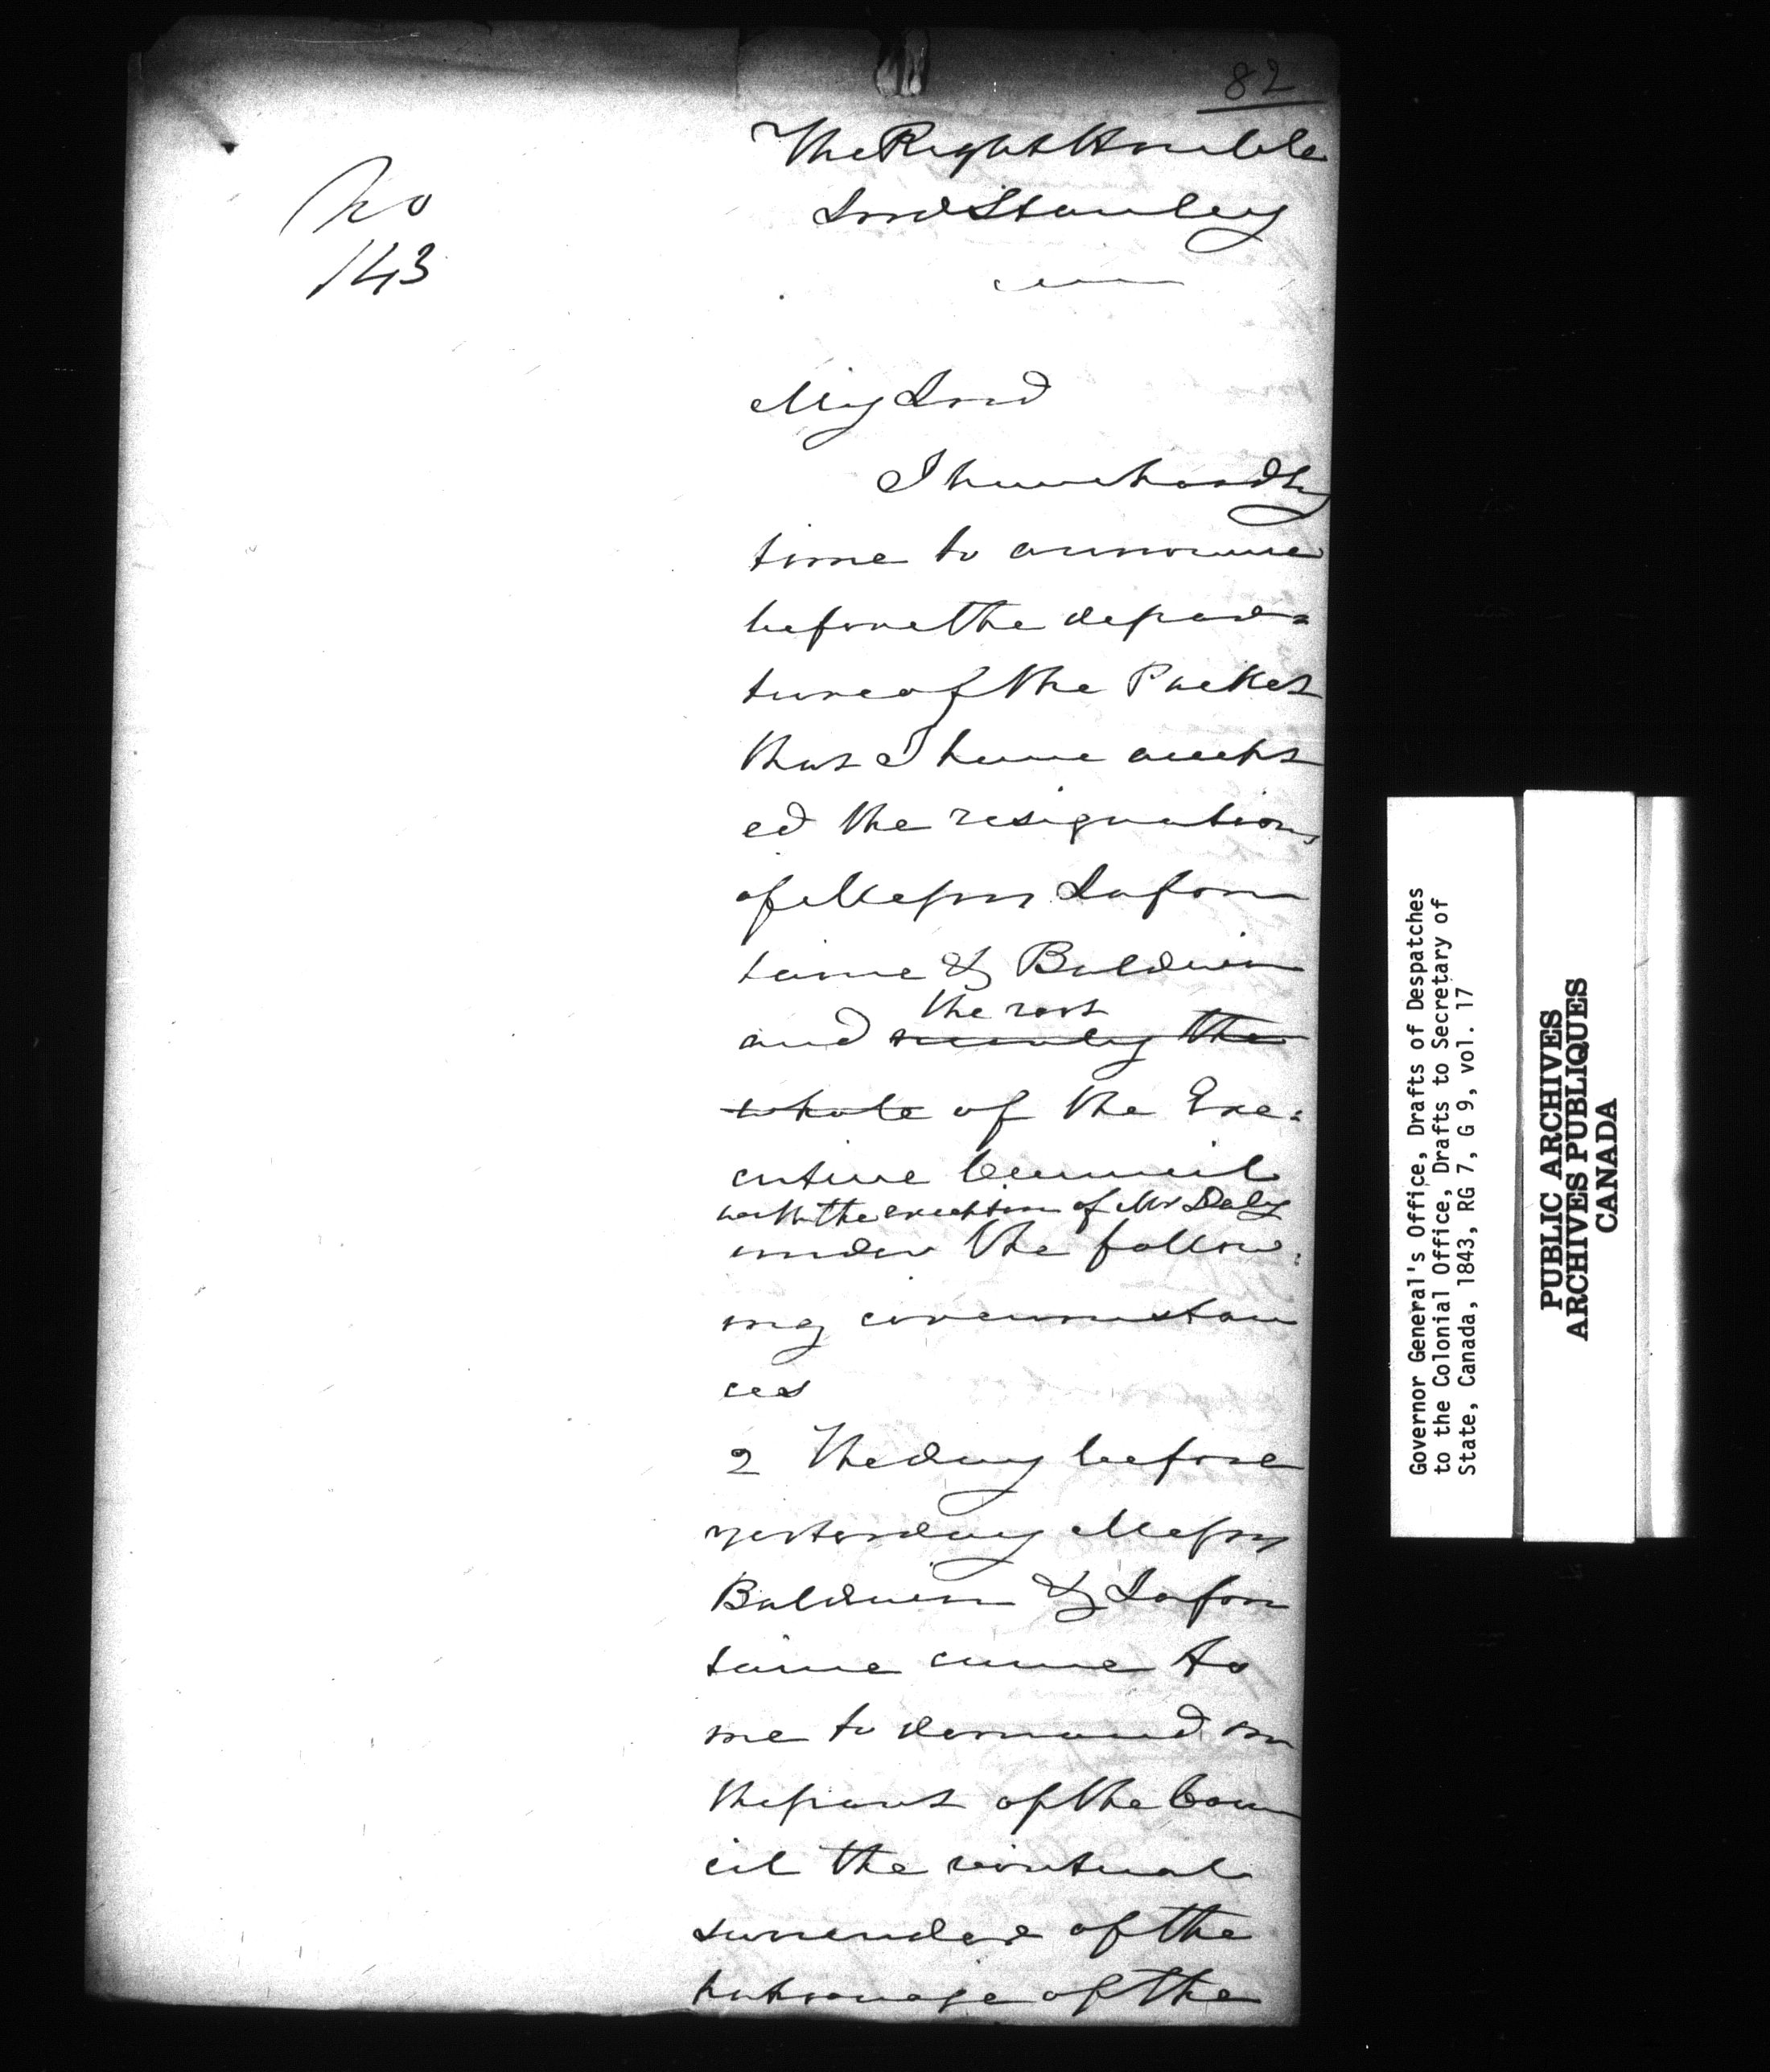 82
The Right Honble
Lord Stanley
No
143
My Lord
I have hardly
time to announce
before the depar=
ture of the Packet
that I have accept
ed the resignations
of Messrs Lafon
taine & Baldwin
the rest
and nearly the
whole of the Exe=
cutive Council
with the exception of Mr Daly
under the follow=
ing circumstan
ces
2 The day before
yesterday Messrs
Baldwin & Lafon
taine came to
me to demand on
the part of the Coun
cil the virtual
surrender of the
patronage of the
Governor General's Office, Drafts of Despatches
to the Colonial Office, Drafts to Secretary of
State, Canada, 1843, RG 7, G 9, vol. 17
PUBLIC ARCHIVES
ARCHIVES PUBLIQUES
CANADA